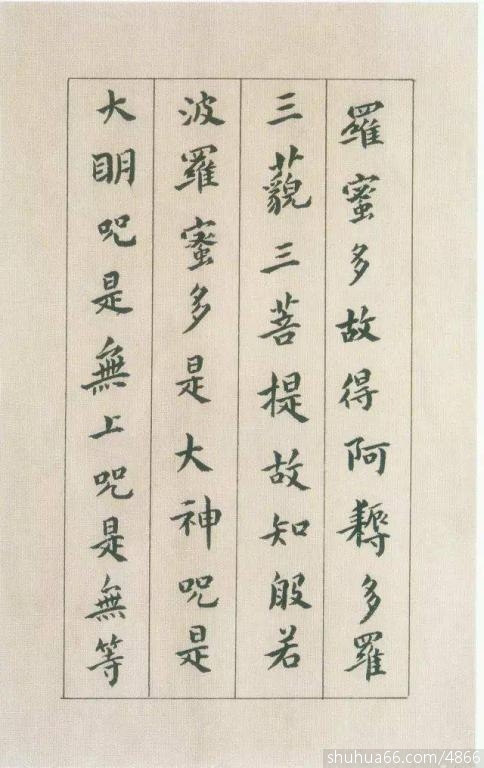 羅蜜多故得阿耨多羅
三藐三菩提故知般若
波羅蜜多是大神咒是
大明咒是無上咒是無等
shuhua66.com/4866